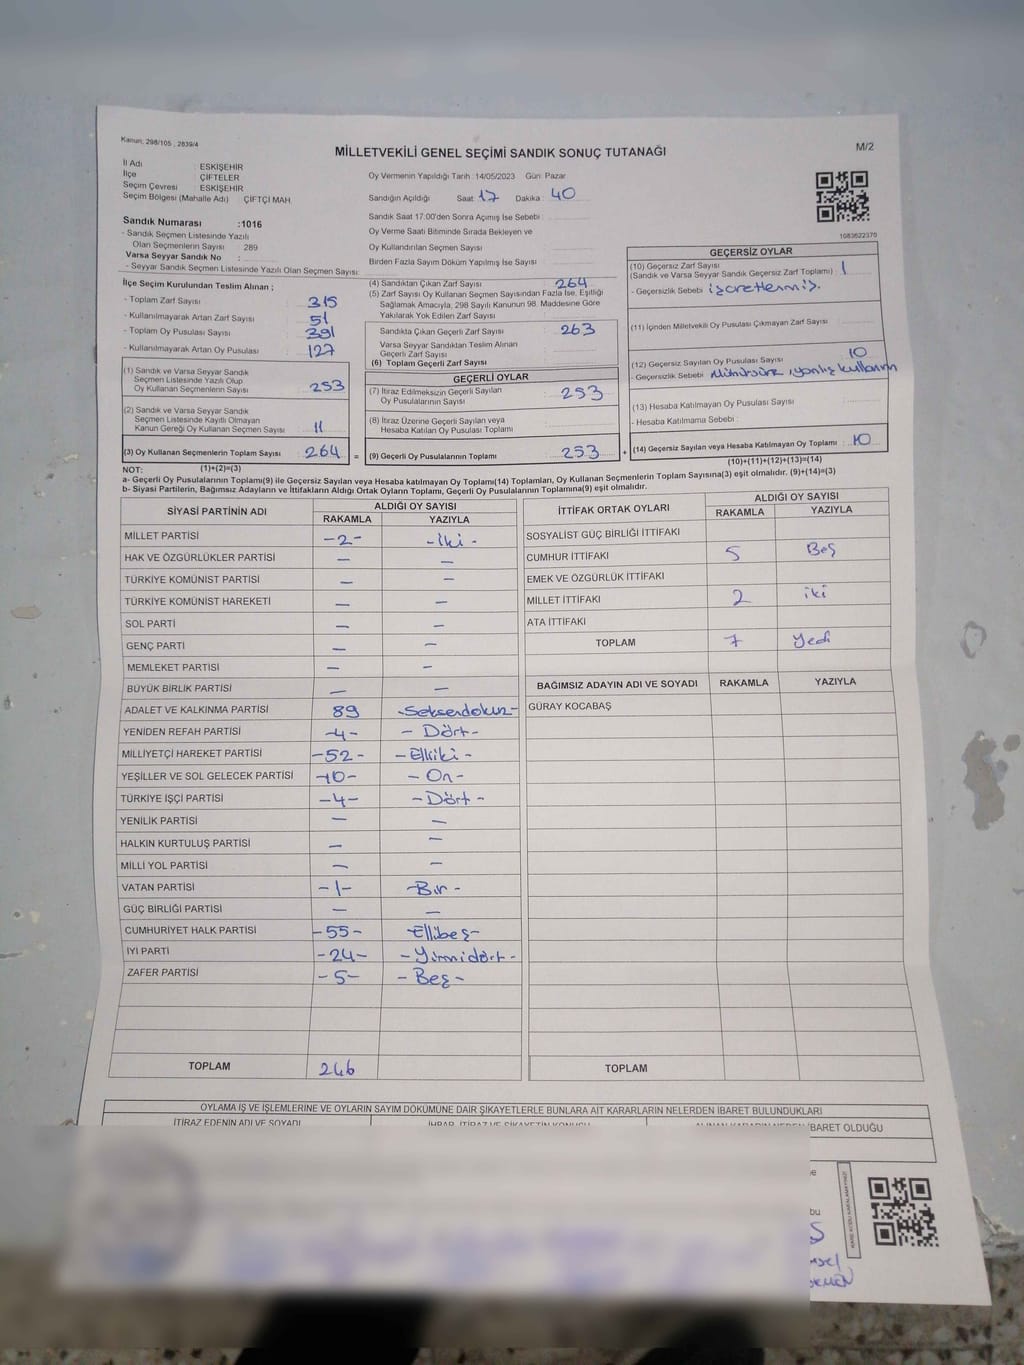 Kanun: 298/105 , 2839/4
MİLLETVEKİLİ GENEL SEÇİMİ SANDIK SONUÇ TUTANAĞI
M/2
İl Adı : ESKİŞEHİR
İlçe : ÇİFTELER
Seçim Çevresi : ESKİŞEHİR
Seçim Bölgesi (Mahalle Adı) ÇİFTÇİ MAH.
Sandık Numarası :1016
- Sandık Seçmen Listesinde Yazılı
Olan Seçmenlerin Sayısı : 289
Varsa Seyyar Sandık No :
- Seyyar Sandık Seçmen Listesinde Yazılı Olan Seçmen Sayısı:
Oy Vermenin Yapıldığı Tarih :14/05/2023 Gün: Pazar
Sandığın Açıldığı Saat 17 Dakika : 40
Sandık Saat 17:00'den Sonra Açımış İse Sebebi :
Oy Verme Saati Bitiminde Sırada Bekleyen ve
Oy Kullandırılan Seçmen Sayısı
Birden Fazla Sayım Döküm Yapılmış İse Sayısı
1083622370
İlçe Seçim Kurulundan Teslim Alınan ;
- Toplam Zarf Sayısı : 315
- Kullanılmayarak Artan Zarf Sayısı : 51
- Toplam Oy Pusulası Sayısı : 391
- Kullanılmayarak Artan Oy Pusulası : 127
(1) Sandık ve Varsa Seyyar Sandık
Seçmen Listesinde Yazılı Olup
Oy Kullanan Seçmenlerin Sayısı : 253
(2) Sandık ve Varsa Seyyar Sandık
Seçmen Listesinde Kayıtlı Olmayan
Kanun Gereği Oy Kullanan Seçmen Sayısı : 11
(3) Oy Kullanan Seçmenlerin Toplam Sayısı : 264 =
(1)+(2)=(3)
(4) Sandıktan Çıkan Zarf Sayısı : 264
(5) Zarf Sayısı Oy Kullanan Seçmen Sayısından Fazla İse, Eşitliği
Sağlamak Amacıyla, 298 Sayılı Kanunun 98. Maddesine Göre
Yakılarak Yok Edilen Zarf Sayısı
Sandıkta Çıkan Geçerli Zarf Sayısı : 263
Varsa Seyyar Sandıktan Teslim Alınan
Geçerli Zarf Sayısı
(6) Toplam Geçerli Zarf Sayısı
GEÇERLİ OYLAR
(7) İtiraz Edilmeksizin Geçerli Sayılan
Oy Pusulalarının Sayısı : 253
(8) İtiraz Üzerine Geçerli Sayılan veya
Hesaba Katılan Oy Pusulası Toplamı
(9) Geçerli Oy Pusulalarının Toplamı : 253 +
GEÇERSİZ OYLAR
(10) Geçersiz Zarf Sayısı
(Sandık ve Varsa Seyyar Sandık Geçersiz Zarf Toplamı) : 1
- Geçersizlik Sebebi : işaretlenmiş.
(11) İçinden Milletvekili Oy Pusulası Çıkmayan Zarf Sayısı
(12) Geçersiz Sayılan Oy Pusulası Sayısı : 10
- Geçersizlik Sebebi : yanlış kullanım
(13) Hesaba Katılmayan Oy Pusulası Sayısı
- Hesaba Katılmama Sebebi :
(14) Geçersiz Sayılan veya Hesaba Katılmayan Oy Toplamı : 10
(10)+(11)+(12)+(13)=(14)
NOT:
a- Geçerli Oy Pusulalarının Toplamı(9) ile Geçersiz Sayılan veya Hesaba katılmayan Oy Toplamı(14) Toplamları, Oy Kullanan Seçmenlerin Toplam Sayısına(3) eşit olmalıdır. (9)+(14)=(3)
b- Siyasi Partilerin, Bağımsız Adayların ve İttifakların Aldığı Ortak Oyların Toplamı, Geçerli Oy Pusulalarının Toplamına(9) eşit olmalıdır.
SİYASİ PARTİNİN ADI ALDIĞI OY SAYISI
RAKAMLA YAZIYLA
MİLLET PARTİSİ -2- -İki-
HAK VE ÖZGÜRLÜKLER PARTİSİ — —
TÜRKİYE KOMÜNİST PARTİSİ — —
TÜRKİYE KOMÜNİST HAREKETİ — —
SOL PARTİ — —
GENÇ PARTİ — —
MEMLEKET PARTİSİ — —
BÜYÜK BİRLİK PARTİSİ — —
ADALET VE KALKINMA PARTİSİ 89 -Seksendokuz-
YENİDEN REFAH PARTİSİ -4- -Dört-
MİLLİYETÇİ HAREKET PARTİSİ -52- -Elliiki-
YEŞİLLER VE SOL GELECEK PARTİSİ -10- -On-
TÜRKİYE İŞÇİ PARTİSİ -4- -Dört-
YENİLİK PARTİSİ — —
HALKIN KURTULUŞ PARTİSİ — —
MİLLİ YOL PARTİSİ — —
VATAN PARTİSİ -1- -Bir-
GÜÇ BİRLİĞİ PARTİSİ — —
CUMHURİYET HALK PARTİSİ -55- -Ellibeş-
İYİ PARTİ -24- -Yirmidört-
ZAFER PARTİSİ -5- -Beş-
TOPLAM 246
İTTİFAK ORTAK OYLARI ALDIĞI OY SAYISI
RAKAMLA YAZIYLA
SOSYALİST GÜÇ BİRLİĞİ İTTİFAKI
CUMHUR İTTİFAKI 5 Beş
EMEK VE ÖZGÜRLÜK İTTİFAKI
MİLLET İTTİFAKI 2 iki
ATA İTTİFAKI
TOPLAM 7 Yedi
BAĞIMSIZ ADAYIN ADI VE SOYADI RAKAMLA YAZIYLA
GÜRAY KOCABAŞ
TOPLAM
OYLAMA İŞ VE İŞLEMLERİNE VE OYLARIN SAYIM DÖKÜMÜNE DAİR ŞİKAYETLERLE BUNLARA AİT KARARLARIN NELERDEN İBARET BULUNDUKLARI
İTİRAZ EDENİN ADI VE SOYADI İHBAR, İTİRAZ VE ŞİKAYETİN KONUSU ALINAN KARARIN NEDEN İBARET OLDUĞU
bu